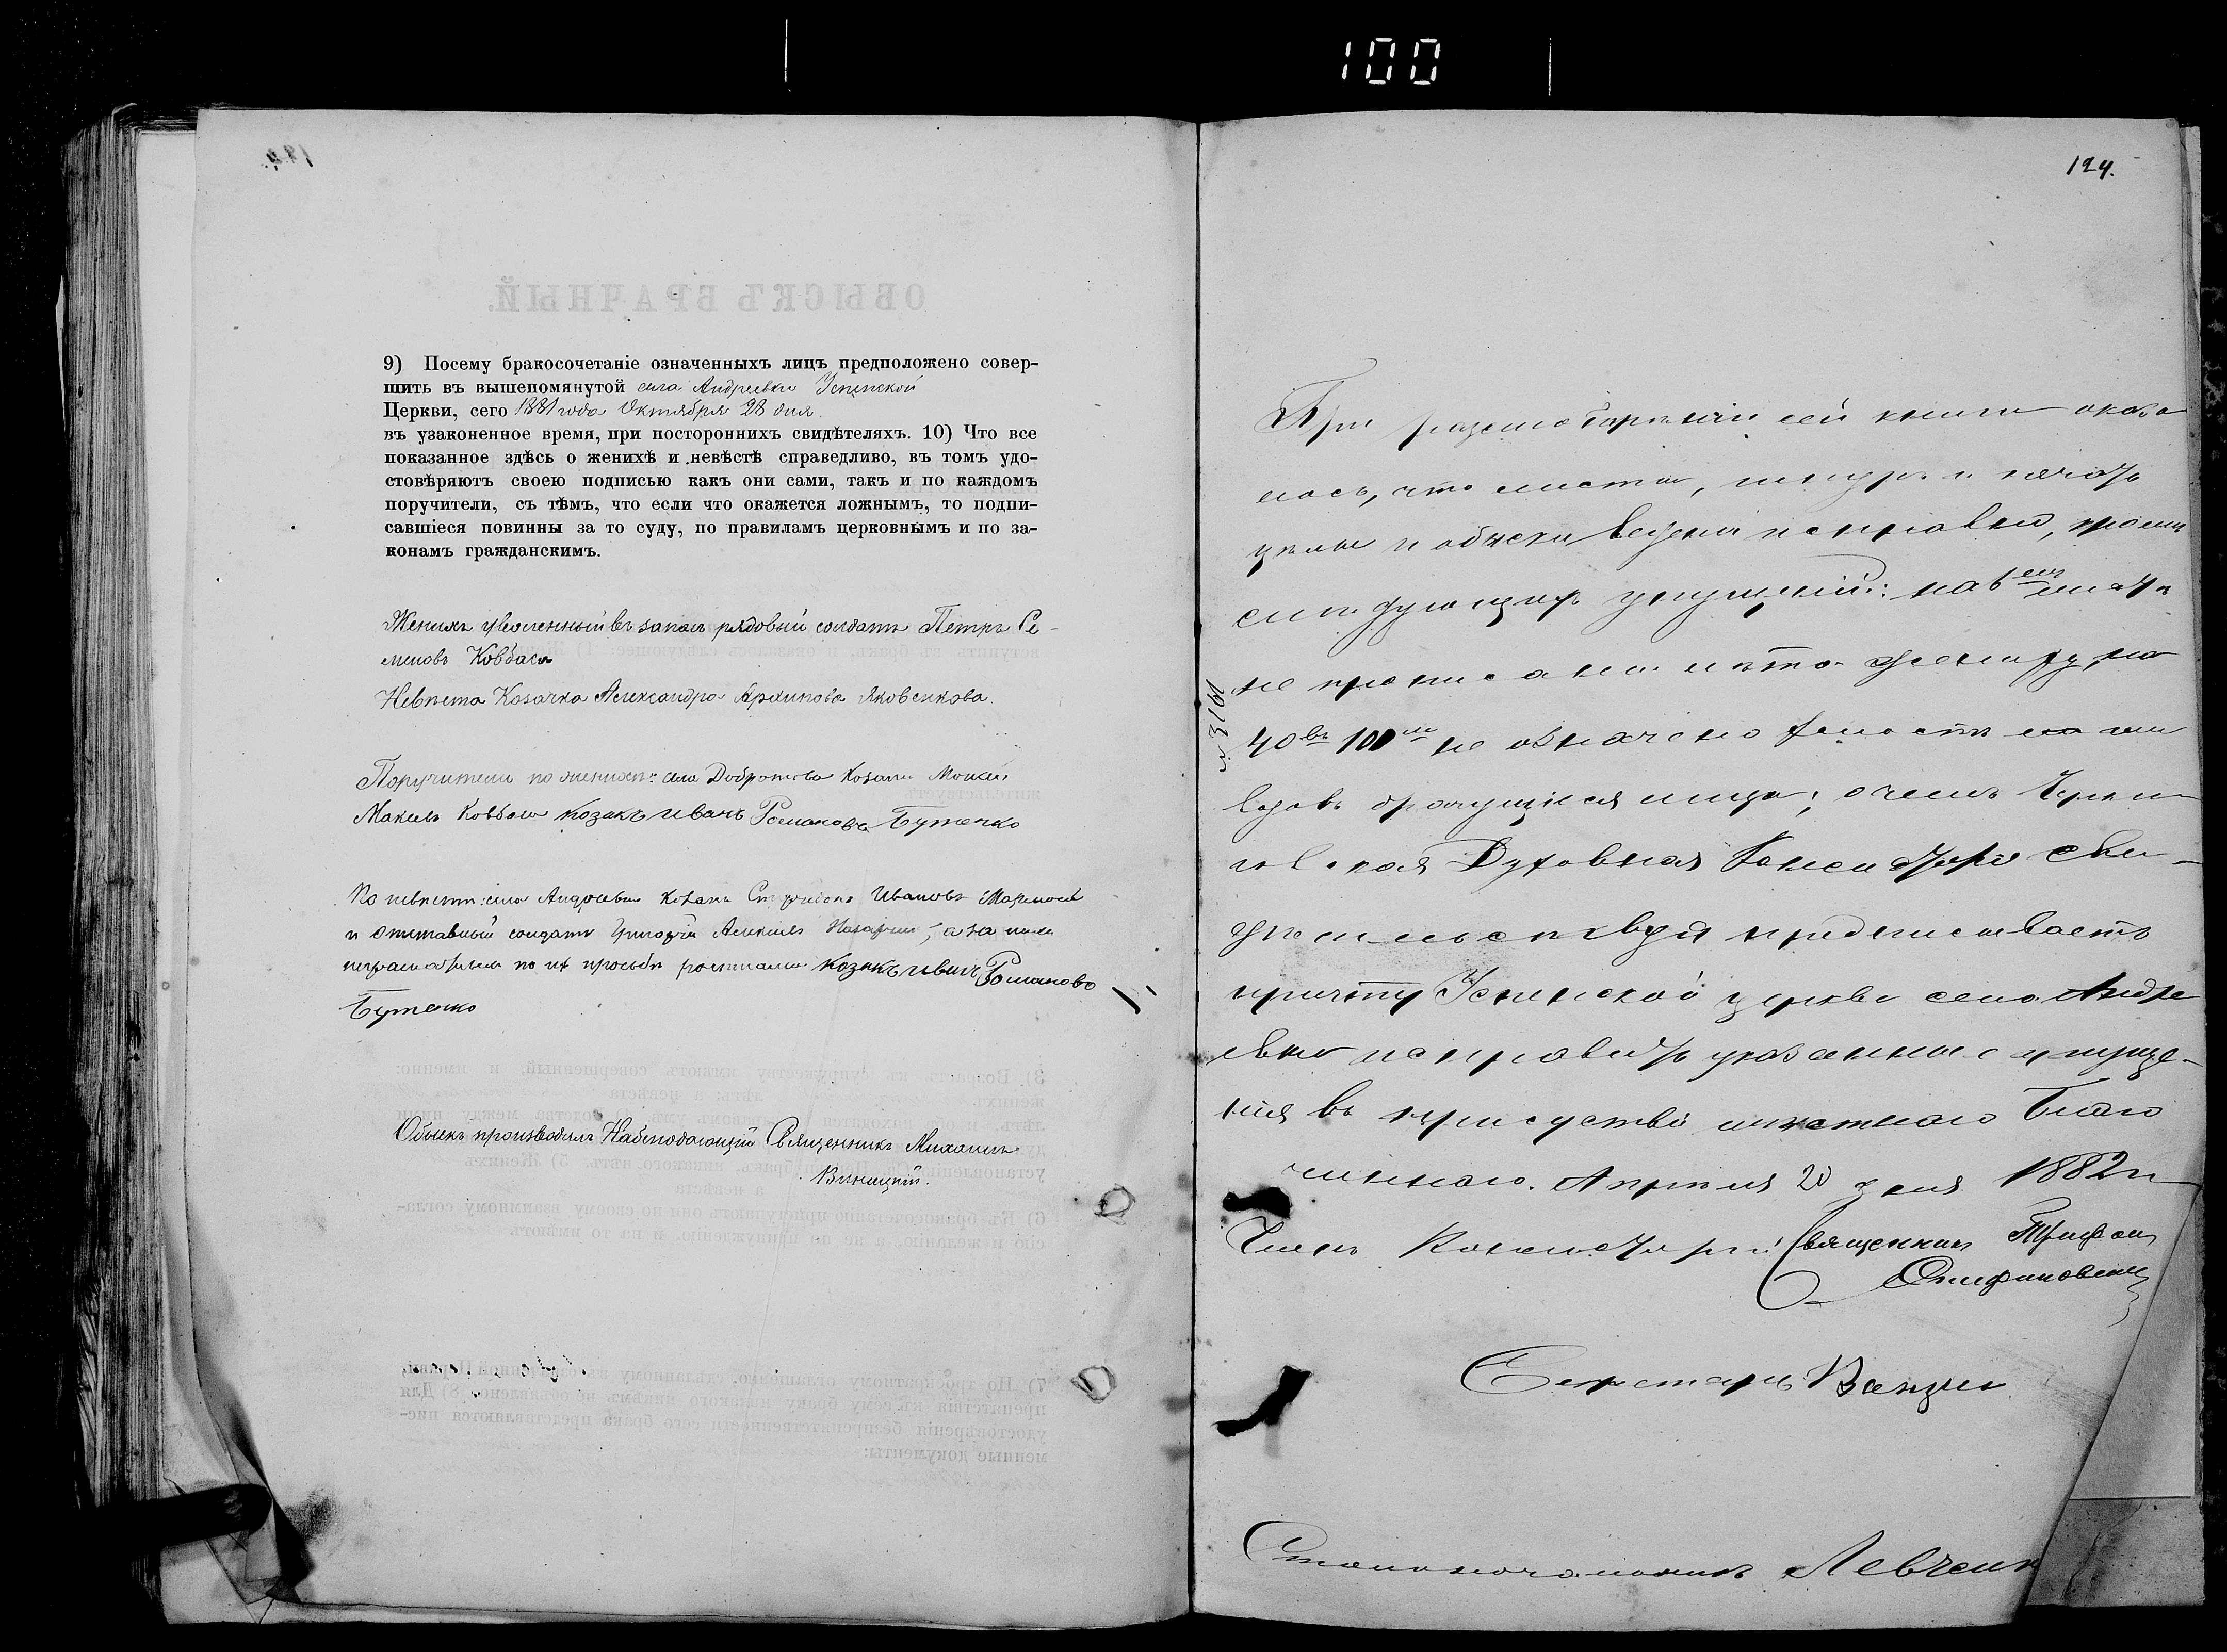 100
124.
9) Посему бракосочетаніе означенныхъ лицъ предположено совер-
шить въ вышепомянутой села Андреевки Успенской
Церкви, сего 1881 года Октября 28 дня
въ узаконенное время, при постороннихъ свидѣтеляхъ. 10) Что все
показанное здѣсь о женихѣ и невѣстѣ справедливо, въ томъ удо-
стовѣряютъ своею подписью какъ они сами, такъ и по каждомъ
поручители, съ тѣмъ, что если что окажется ложнымъ, то подпи-
савшіеся повинны за то суду, по правиламъ церковнымъ и по за-
конамъ гражданскимъ.
Женихъ уволенный въ запасъ рядовый солдатъ Петръ Се-
меновъ Ковбаса
Невѣста Козачка Александра Архипова Яковенкова.
Поручители по женихѣ: села Добротова Козаки Моисей
Ковбаса козакъ иванъ Романовъ Бутенко
По невѣстѣ: села Андреевки Козакъ Спиридонъ Ивановъ
и отставный солдатъ Григорій ; а за ними
по ихъ просьбѣ козакъ иванъ Романовъ
Бутенко
Обыскъ производилъ Наблюдающій Священникъ Михаилъ
Виницкій.
При разсмотрѣніи сей книги оказа
лось, что листы, шнуръ и печать
цѣлы и обыски ведены исправно, кромѣ
слѣдующихъ упущеній: на 6
не прописаны лѣта жениху, на
40въ 100мъ не означено
вдовъ лица; о чемъ Черни
говская Духовная Консисторія сви-
дѣтельствуя предписываетъ
причту Успенской церкви села Андре
евки исправить указанныя упуще-
нія въ присуствіи мѣстнаго Благо
чиннаго. Апрѣля 20 дня 1882 г
Членъ Консисторіи Священникъ Трифонъ
Стефановскій
Секретарь
Столоначальникъ Левченк